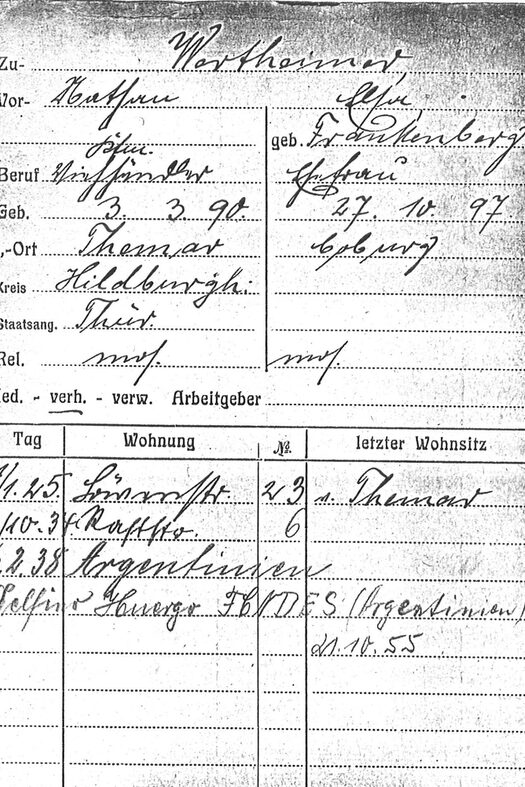 Zu- Wertheimer,
Vor- Nathan Elsa,
Kfm. geb. Frankenberg
Beruf Viehhändler Ehefrau
Geb. 3. 3. 90 27. 10. 97
,-Ort Themar Coburg
Kreis Hildburgh.
Staatsang. Thür.
Rel. mos. mos.
led. - verh. - verw. Arbeitgeber
Tag Wohnung № letzter Wohnsitz
1.25. Löwenstr. 23 v. Themar
10.34. 6
2 38 Argentinien
Delfino Huergo (Argentinien)
21.10.55